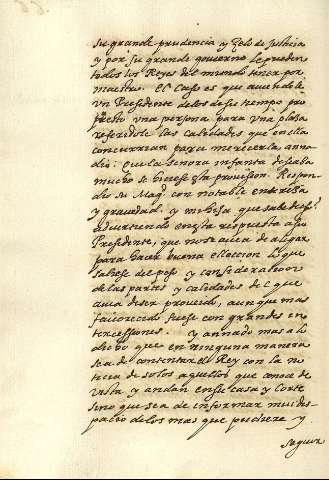 su grande prudencia y Zelo de Justicia
y por su grande gouierno le pueden
todos los Reyes del mundo tener por
maestro. El Caso es que auiendole
Vn Presidente de los de su tiempo pro
puesto vna persona para vna plaza
referidole las calidades que en ella
concurrian para merecerla, anna
dio: Que la Senora infanta deseaba
mucho se hiciese esta prouision. Respon
dio su Magd. con notable entereza
y grauedad.
aduirtiendo en esta respuesta a su
Presidente, que no se auia de alegar
para hacer buena eleccion lo que
sabese del peso y consideracion
de las partes y calidades del que
auia de ser proueido, aunque mas
fauorecido fuese con grandes in
tercessiones. y annado mas a lo
dicho que en ninguna manera
sea de contentar el Rey con la no
ticia de solos aquellos que conoce de
vista y andan en su casa y Corte
sino que sea de informar mui des
pacio de los mas que pudiere y
seguir